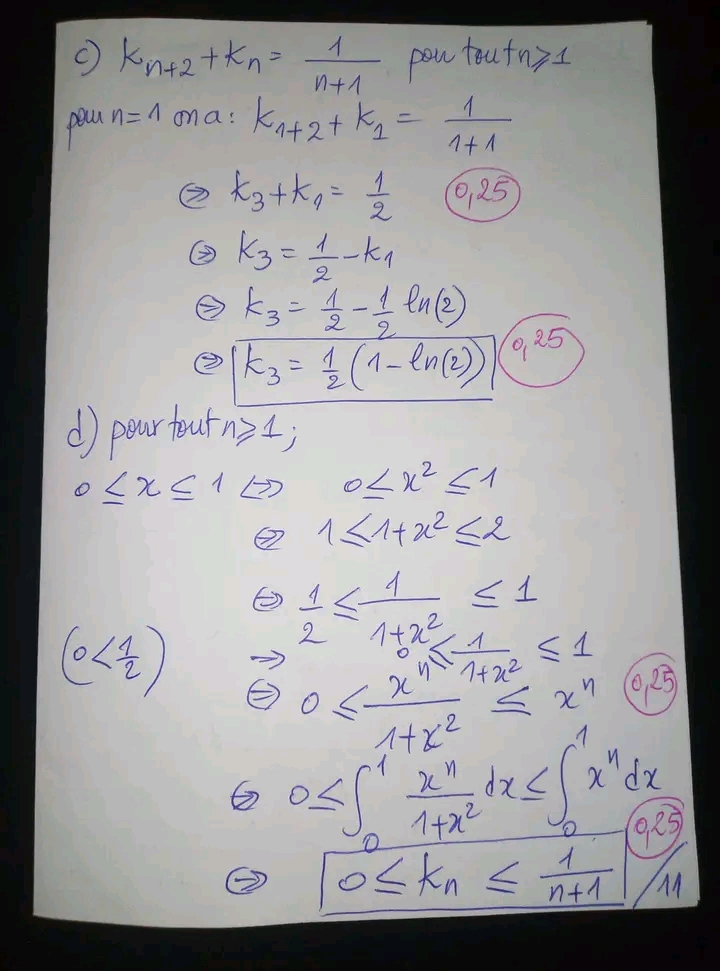 c) K_{n+2} + K_n = 1/(n+1) pour tout n ≥ 1
pour n = 1 on a : K_{1+2} + K_1 = 1/(1+1)
⇔ K_3 + K_1 = 1/2 0,25
⇔ K_3 = 1/2 - K_1
⇔ K_3 = 1/2 - 1/2 ln(2)
⇔ K_3 = 1/2 (1 - ln(2)) 0,25
d) pour tout n ≥ 1 ;
0 ≤ x ≤ 1 ⇔ 0 ≤ x² ≤ 1
⇔ 1 ≤ 1+x² ≤ 2
⇔ 1/2 ≤ 1/(1+x²) ≤ 1
(0 < 1/2) ⇒ 0 ≤ 1/(1+x²) ≤ 1
⇔ 0 ≤ xⁿ/(1+x²) ≤ xⁿ 0,25
⇔ 0 ≤ ∫₀¹ xⁿ/(1+x²) dx ≤ ∫₀¹ xⁿ dx
⇔ 0 ≤ K_n ≤ 1/(n+1) 0,25
/11